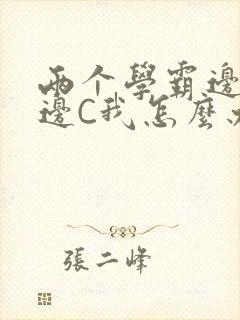 两个學霸邊
邊C我怎麼
張二峰